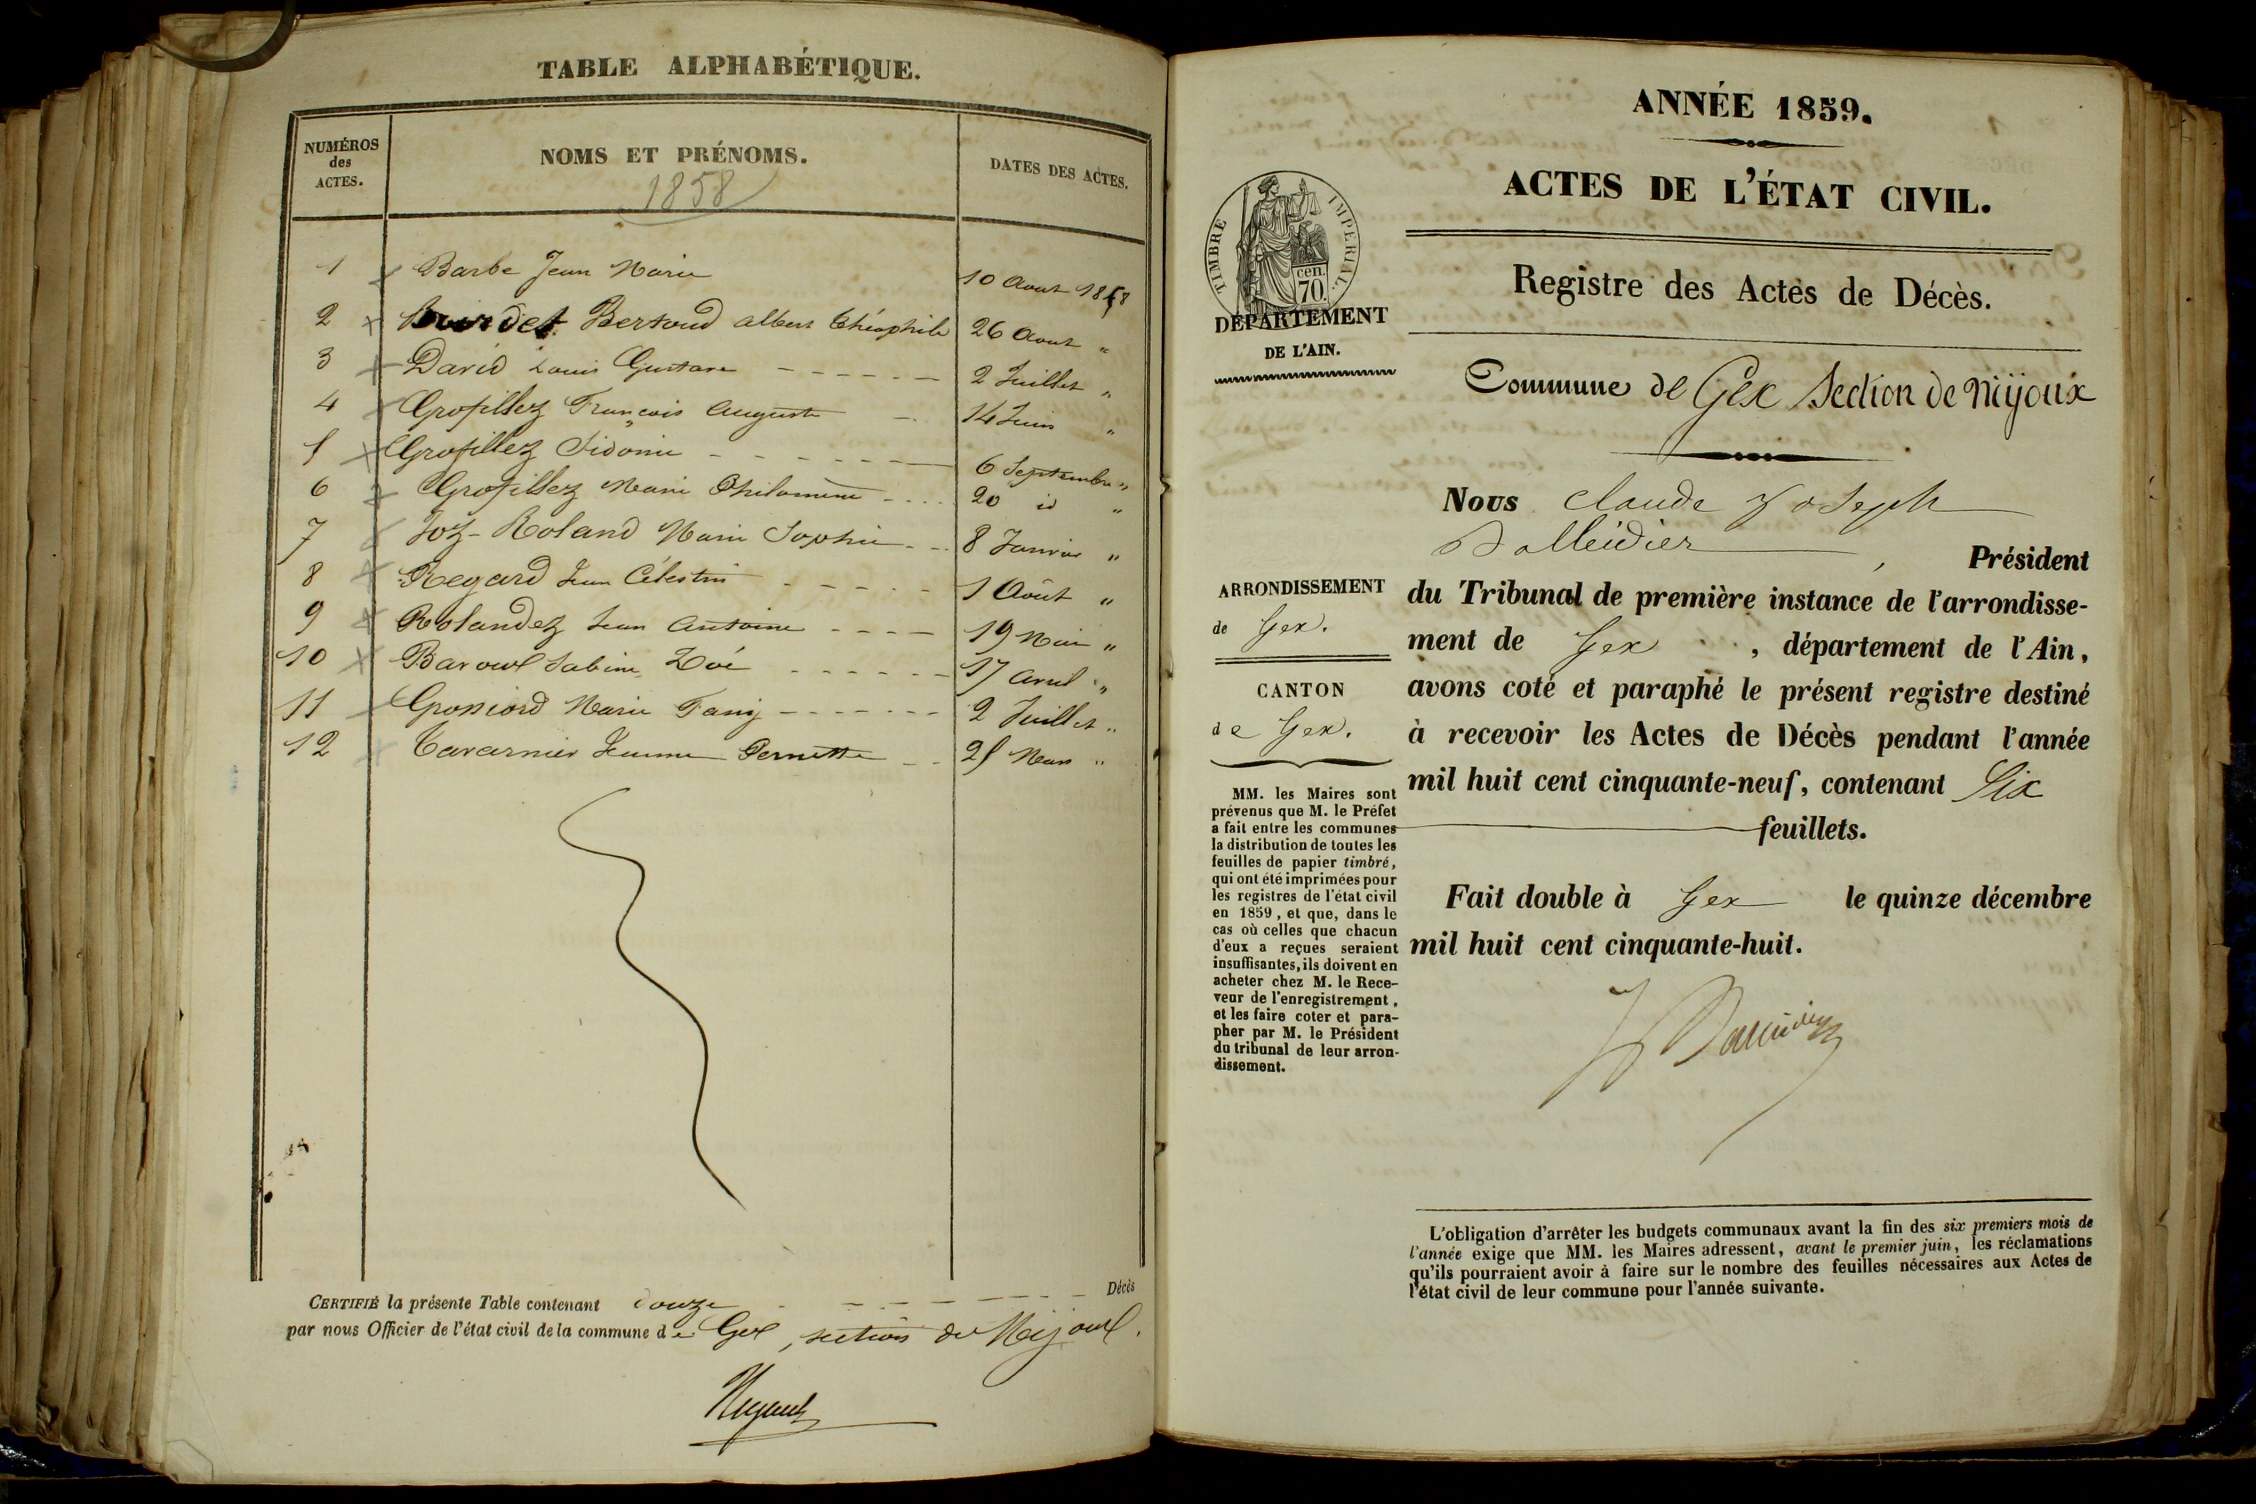 TABLE ALPHABÉTIQUE.
NUMÉROS des ACTES.
NOMS ET PRÉNOMS.
DATES DES ACTES.
1858
1 Barbe Jean Marie 10 Aout 1858
2 Bertoud Albert Théophile 26 Aout "
3 David Louis Gustave 2 Juillet "
4 Grofillez François Auguste 14 Juin "
5 Grofillez Sidonie 6 Septembre "
6 Grofillez Marie Philomène 20 id "
7 Joz-Roland Marie Sophie 8 Janvier "
8 Regard Jean Célestin 1 Août "
9 Rolandez Jean Antoine 19 Mai "
10 Baroux Sabine Zoé 17 Avril "
11 Grossiord Marie Fany 2 Juillet "
12 Tavarnier Jeanne Pernette 25 Mars "
CERTIFIÉ la présente Table contenant douze Décès
par nous Officier de l'état civil de la commune de Gex, section de Mijoux.
ANNÉE 1859.
ACTES DE L'ÉTAT CIVIL.
TIMBRE IMPÉRIAL.
cen.
70.
DÉPARTEMENT
DE L'AIN.
Registre des Actes de Décès.
Commune de Gex Section de Mijoux
Nous Claude Joseph
Dalleidier, Président
du Tribunal de première instance de l'arrondisse-
ment de Gex, département de l'Ain,
avons coté et paraphé le présent registre destiné
à recevoir les Actes de Décès pendant l'année
mil huit cent cinquante-neuf, contenant Six
feuillets.
Fait double à Gex le quinze décembre
mil huit cent cinquante-huit.
ARRONDISSEMENT
de Gex.
CANTON
de Gex.
MM. les Maires sont
prévenus que M. le Préfet
a fait entre les communes
la distribution de toutes les
feuilles de papier timbré,
qui ont été imprimées pour
les registres de l'état civil
en 1859, et que, dans le
cas où celles que chacun
d'eux a reçues seraient
insuffisantes, ils doivent en
acheter chez M. le Rece-
veur de l'enregistrement,
et les faire coter et para-
pher par M. le Président
du tribunal de leur arron-
dissement.
L'obligation d'arrêter les budgets communaux avant la fin des six premiers mois de
l'année exige que MM. les Maires adressent, avant le premier juin, les réclamations
qu'ils pourraient avoir à faire sur le nombre des feuilles nécessaires aux Actes de
l'état civil de leur commune pour l'année suivante.